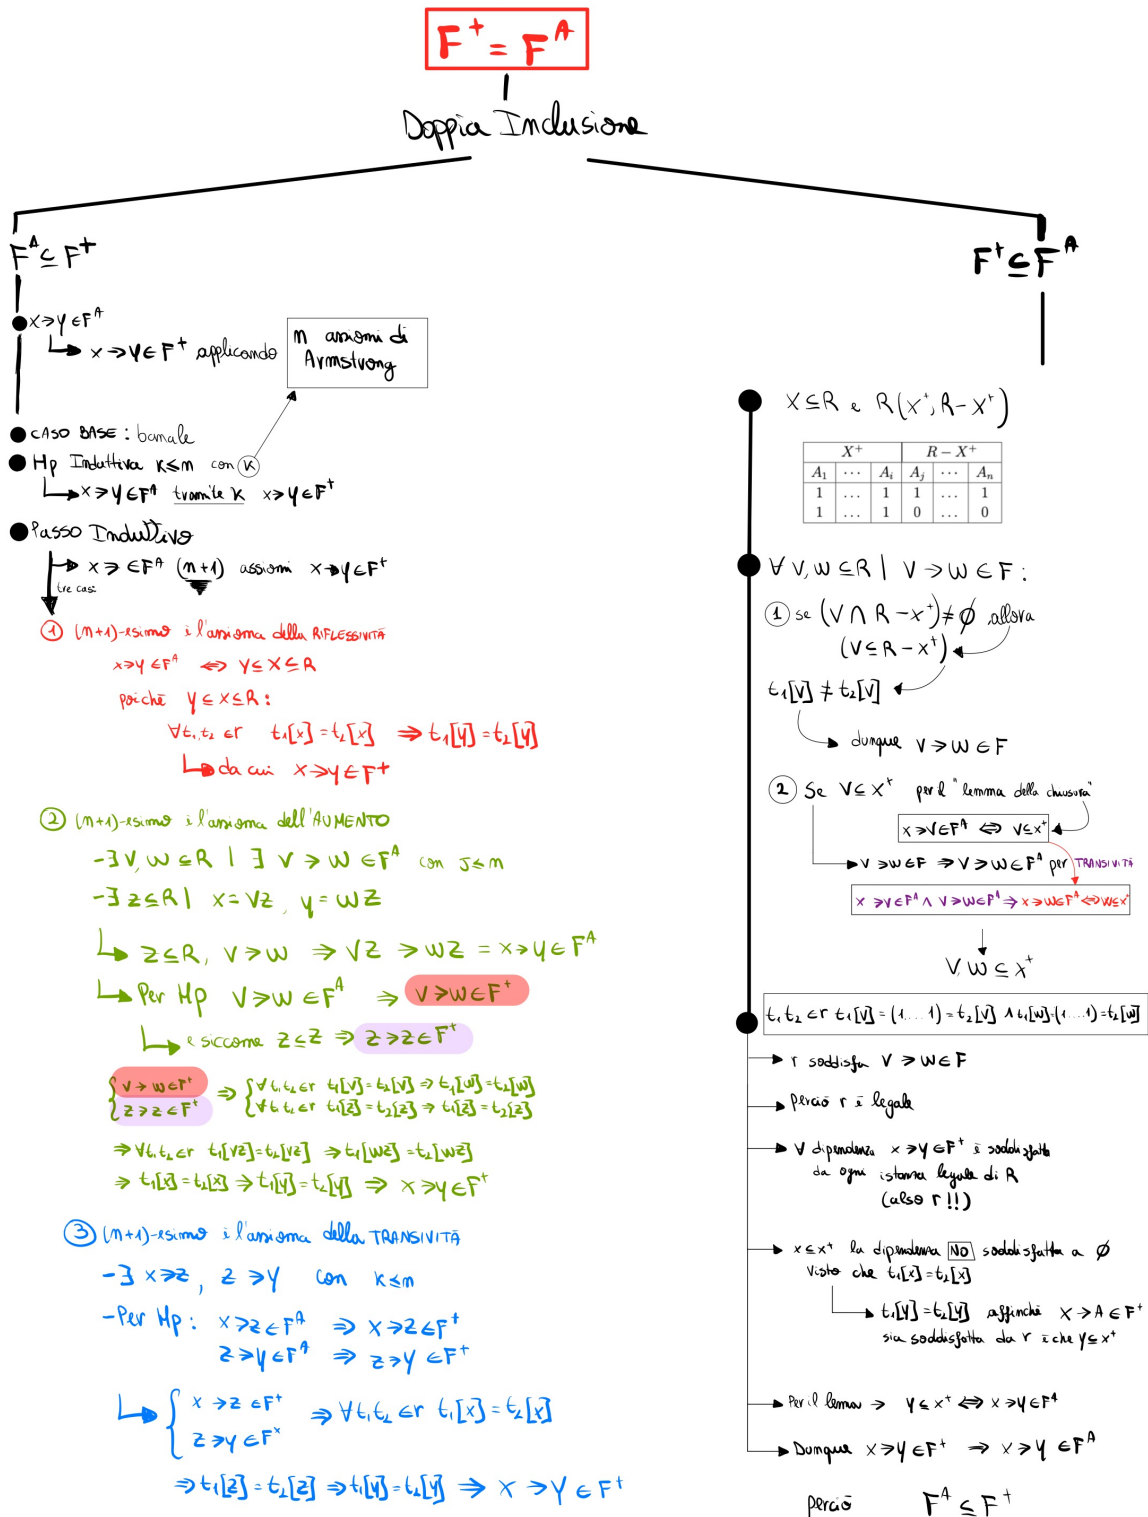 F⁺ = Fᴬ
Doppia Inclusione
Fᴬ ⊆ F⁺
x→y ∈ Fᴬ
x→y ∈ F⁺ applicando
n assiomi di
Armstrong
CASO BASE: banale
Hp Induttiva k≤n con k
x→y ∈ Fᴬ tramite k x→y ∈ F⁺
Passo Induttivo
x→ ∈ Fᴬ (n+1) assiomi x→y ∈ F⁺
tre casi
① (n+1)-esimo è l'assioma della RIFLESSIVITÀ
x→y ∈ Fᴬ ⇔ y ⊆ x ⊆ R
poichè y ⊆ x ⊆ R:
∀t₁,t₂ ∈ r t₁[x] = t₂[x] ⇒ t₁[y] = t₂[y]
da cui x→y ∈ F⁺
② (n+1)-esimo è l'assioma dell'AUMENTO
-∃ V, W ⊆ R | ∃ V → W ∈ Fᴬ con J≤n
-∃ z ⊆ R | x = Vz, y = wz
z ⊆ R, V→w ⇒ Vz → wz = x→y ∈ Fᴬ
Per Hp V→w ∈ Fᴬ ⇒ V→w ∈ F⁺
e siccome z ⊆ z ⇒ z→z ∈ F⁺
{ V→w ∈ F⁺ ⇒ { ∀t₁,t₂ ∈ r t₁[V] = t₂[V] ⇒ t₁[w] = t₂[w]
z→z ∈ F⁺ ∀t₁,t₂ ∈ r t₁[z] = t₂[z] ⇒ t₁[z] = t₂[z]
⇒ ∀t₁,t₂ ∈ r t₁[Vz] = t₂[Vz] ⇒ t₁[wz] = t₂[wz]
⇒ t₁[x] = t₂[x] ⇒ t₁[y] = t₂[y] ⇒ x→y ∈ F⁺
③ (n+1)-esimo è l'assioma della TRANSIVITÀ
-∃ x→z, z→y con k≤n
-Per Hp: x→z ∈ Fᴬ ⇒ x→z ∈ F⁺
z→y ∈ Fᴬ ⇒ z→y ∈ F⁺
{ x→z ∈ F⁺ ⇒ ∀t₁,t₂ ∈ r t₁[x] = t₂[x]
z→y ∈ F⁺
⇒ t₁[z] = t₂[z] ⇒ t₁[y] = t₂[y] ⇒ x→y ∈ F⁺
F⁺ ⊆ Fᴬ
X ⊆ R e R(X⁺, R-X⁺)
X⁺ R − X⁺
A₁ ⋯ Aᵢ Aⱼ ⋯ Aₙ
1 … 1 1 … 1
1 … 1 0 … 0
∀ V,W ⊆ R | V → W ∈ F:
① se (V ∩ R - x⁺) ≠ ∅ allora
(V ⊆ R - x⁺)
t₁[V] ≠ t₂[V]
dunque V→W ∈ F
② Se V ⊆ x⁺ per il "lemma della chiusura"
x→V ∈ Fᴬ ⇔ V ⊆ x⁺
V→W ∈ F ⇒ V→W ∈ Fᴬ per TRANSIVITÀ
x→V ∈ Fᴬ ∧ V→W ∈ Fᴬ ⇒ x→W ∈ Fᴬ ⇔ W ⊆ x⁺
V,W ⊆ x⁺
t₁,t₂ ∈ r t₁[V] = (1....1) = t₂[V] ∧ t₁[W] = (1....1) = t₂[W]
r soddisfa V→W ∈ F
Perciò r è legale
∀ dipendenza x→y ∈ F⁺ è soddisfatta
da ogni istanza legale di R
(also r !!)
x ⊆ x⁺ la dipendenza NO soddisfatta a ∅
visto che t₁[x] = t₂[x]
t₁[y] = t₂[y] affinchè X→A ∈ F⁺
sia soddisfatta da r è che y ⊆ x⁺
Per il lemma → y ⊆ x⁺ ⇔ x→y ∈ Fᴬ
Dunque x→y ∈ F⁺ ⇒ x→y ∈ Fᴬ
perciò Fᴬ ⊆ F⁺